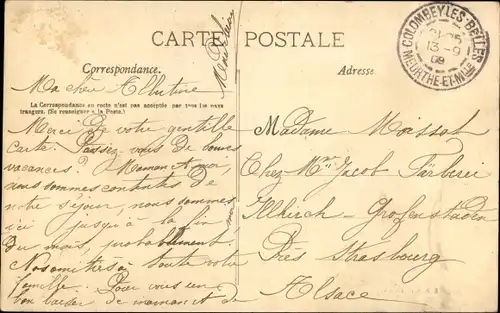 CARTE POSTALE
Correspondance.
Adresse.
COLOMBEY-LES-BELLES
13-9
09
MEURTHE-ET-MLLE
Ma chère Albertine
La Correspondance au recto n'est pas acceptée par tous les pays
étrangers. (Se renseigner à la Poste.)
Merci de votre gentille
carte. Passez vous de bonnes
vacances? Maman et moi,
nous sommes contentes de
notre séjour, nous sommes
ici jusqu'à la fin
du mois, probablement.
Nos amitiés à toute votre
famille. Pour vous un
bon baiser de maman et de
Madame Moissat
Chez Mr. Jacob Färberei
Illkirch - Grafenstaden
Près Strasbourg
Alsace